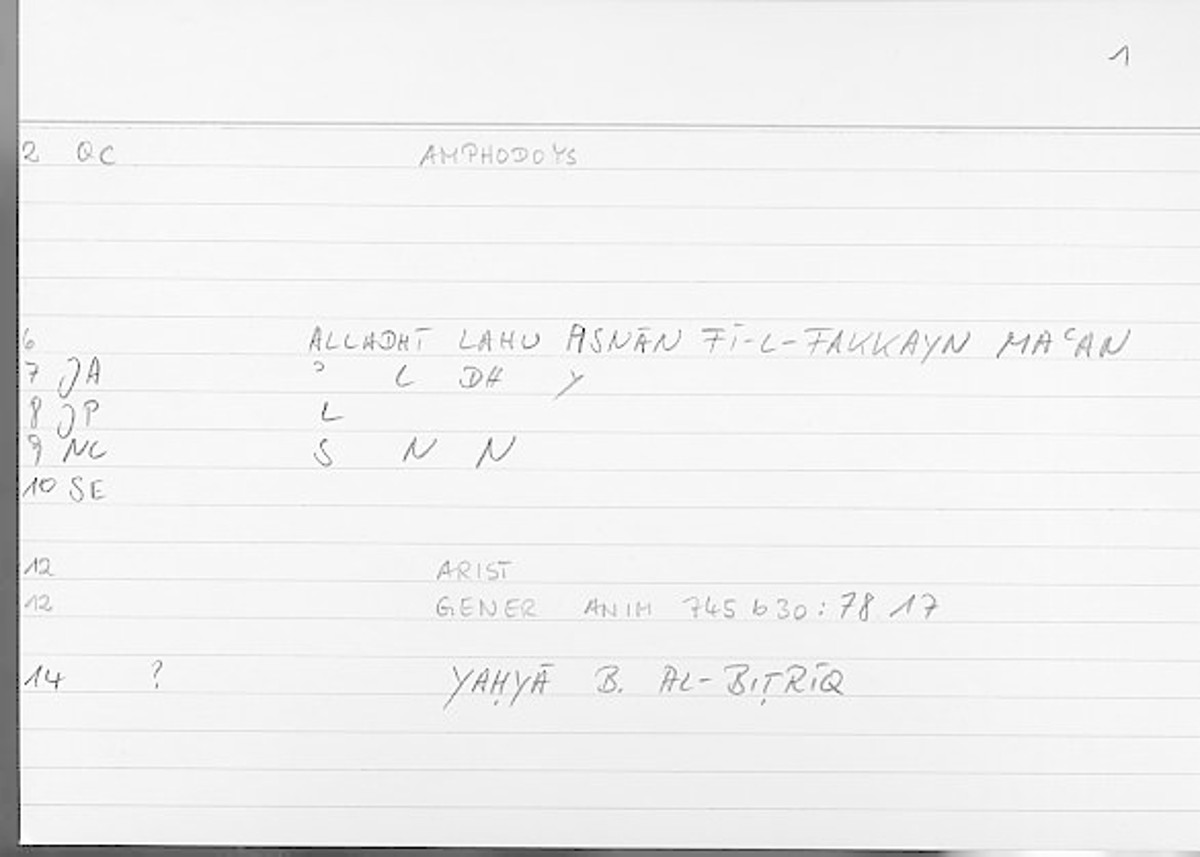 1
2 QC AMPHODOYS
6 ALLADHĪ LAHU ASNĀN FĪ-L-FAKKAYN MAʿAN
7 JA ʾ L DH Y
8 JP L
9 NC S N N
10 SE
12 ARIST
12 GENER ANIM 745 b 30 : 78.17
14 ? YAḤYĀ B. AL-BIṬRĪQ